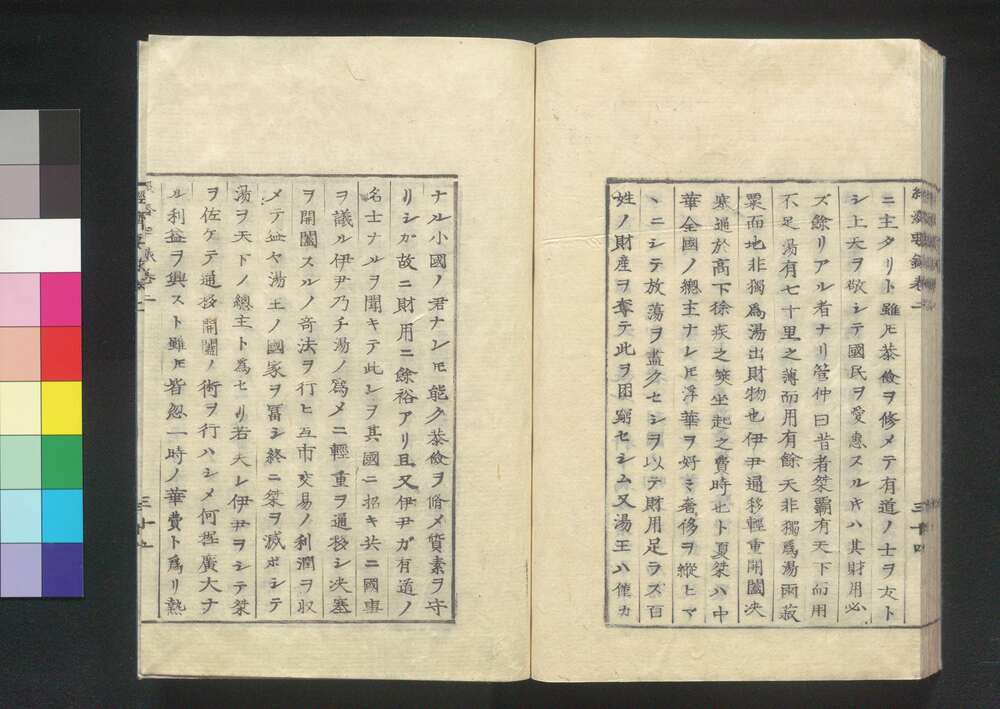 經濟要錄卷二
三十四
ニ主タリト雖𪜈恭儉ヲ修メテ有道ノ士ヲ友ト
シ上天ヲ敬シテ國民ヲ愛惠スルキハ其財用必
ズ餘リアル者ナリ管仲曰昔者桀霸有天下而用
不足湯有七十里之薄而用有餘天非獨爲湯雨菽
粟而地非獨爲湯出財物也伊尹通移輕重開闔决
塞通於高下徐疾之筴坐起之費時也ト夏桀ハ中
華全國ノ總主ナレ𪜈浮華ヲ好ミ奢侈ヲ縱ヒマ
ヽニシテ放蕩ヲ盡クセシヲ以テ財用足ラズ百
姓ノ財産ヲ奪テ此ヲ困窮セシム又湯王ハ僅カ
ナル小國ノ君ナレ𪜈能ク恭儉ヲ脩メ質素ヲ守
リシガ故ニ財用ニ餘裕アリ且又伊尹ガ有道ノ
名士ナルヲ聞キテ此レヲ其國ニ招キ共ニ國事
ヲ議ル伊尹乃チ湯ノ爲メニ輕重ヲ通移シ决塞
ヲ開闔スルノ奇法ヲ行ヒ互市交易ノ利潤ヲ收
メテ湯王ノ國家ヲ冨シ終ニ桀ヲ滅ボシテ
湯ヲ天下ノ總主ト爲セリ若夫レ伊尹ヲシテ桀
ヲ佐ケテ通移開闔ノ術ヲ行ハシメ何程廣大ナ
ル利益ヲ興スト雖𪜈皆忽一時ノ華費ト爲リ熱